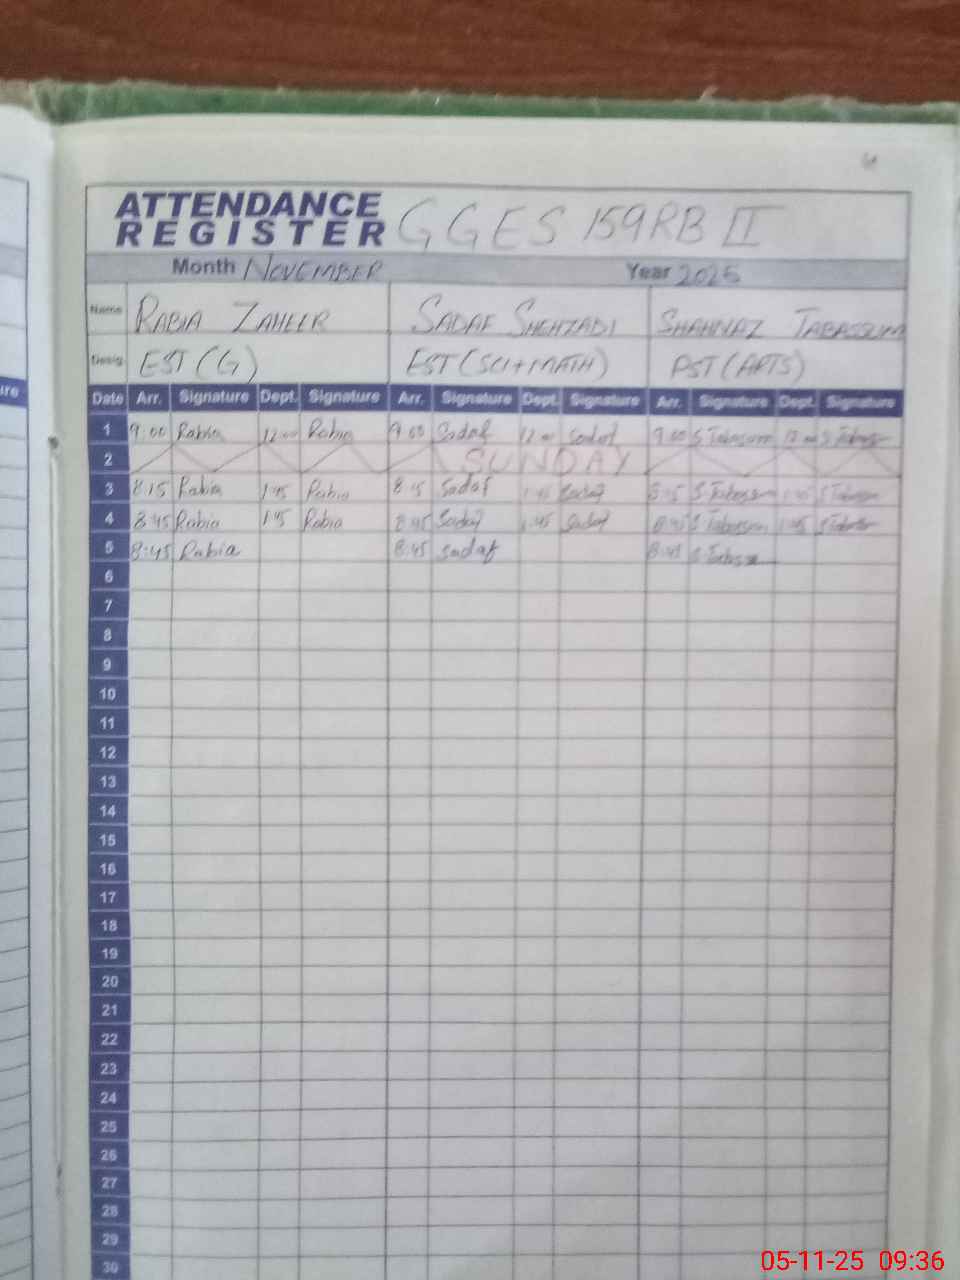 ATTENDANCE REGISTER GGES 159RB II
Month NOVEMBER Year 2025
Name RABIA ZAHEER SADAF SHEHZADI SHAHNAZ TABASSUM
Desig EST (G) EST (SCI+MATH) PST (ARTS)
Date Arr. Signature Dept. Signature Arr. Signature Dept. Signature Arr. Signature Dept. Signature
1 9:00 Rabia 12:00 Rabia 9:00 Sadaf 12:00 Sadaf 9:00 S Tabassum 12:00 S Tabassum
2 SUNDAY
3 8:15 Rabia 1:45 Rabia 8:15 Sadaf 1:45 Sadaf 8:15 S Tabassum 1:45 S Tabassum
4 8:45 Rabia 1:45 Rabia 8:45 Sadaf 1:45 Sadaf 8:45 S Tabassum 1:45 S Tabassum
5 8:45 Rabia 8:45 Sadaf 8:45 S Tabassum
6
7
8
9
10
11
12
13
14
15
16
17
18
19
20
21
22
23
24
25
26
27
28
29
30
05-11-25 09:36